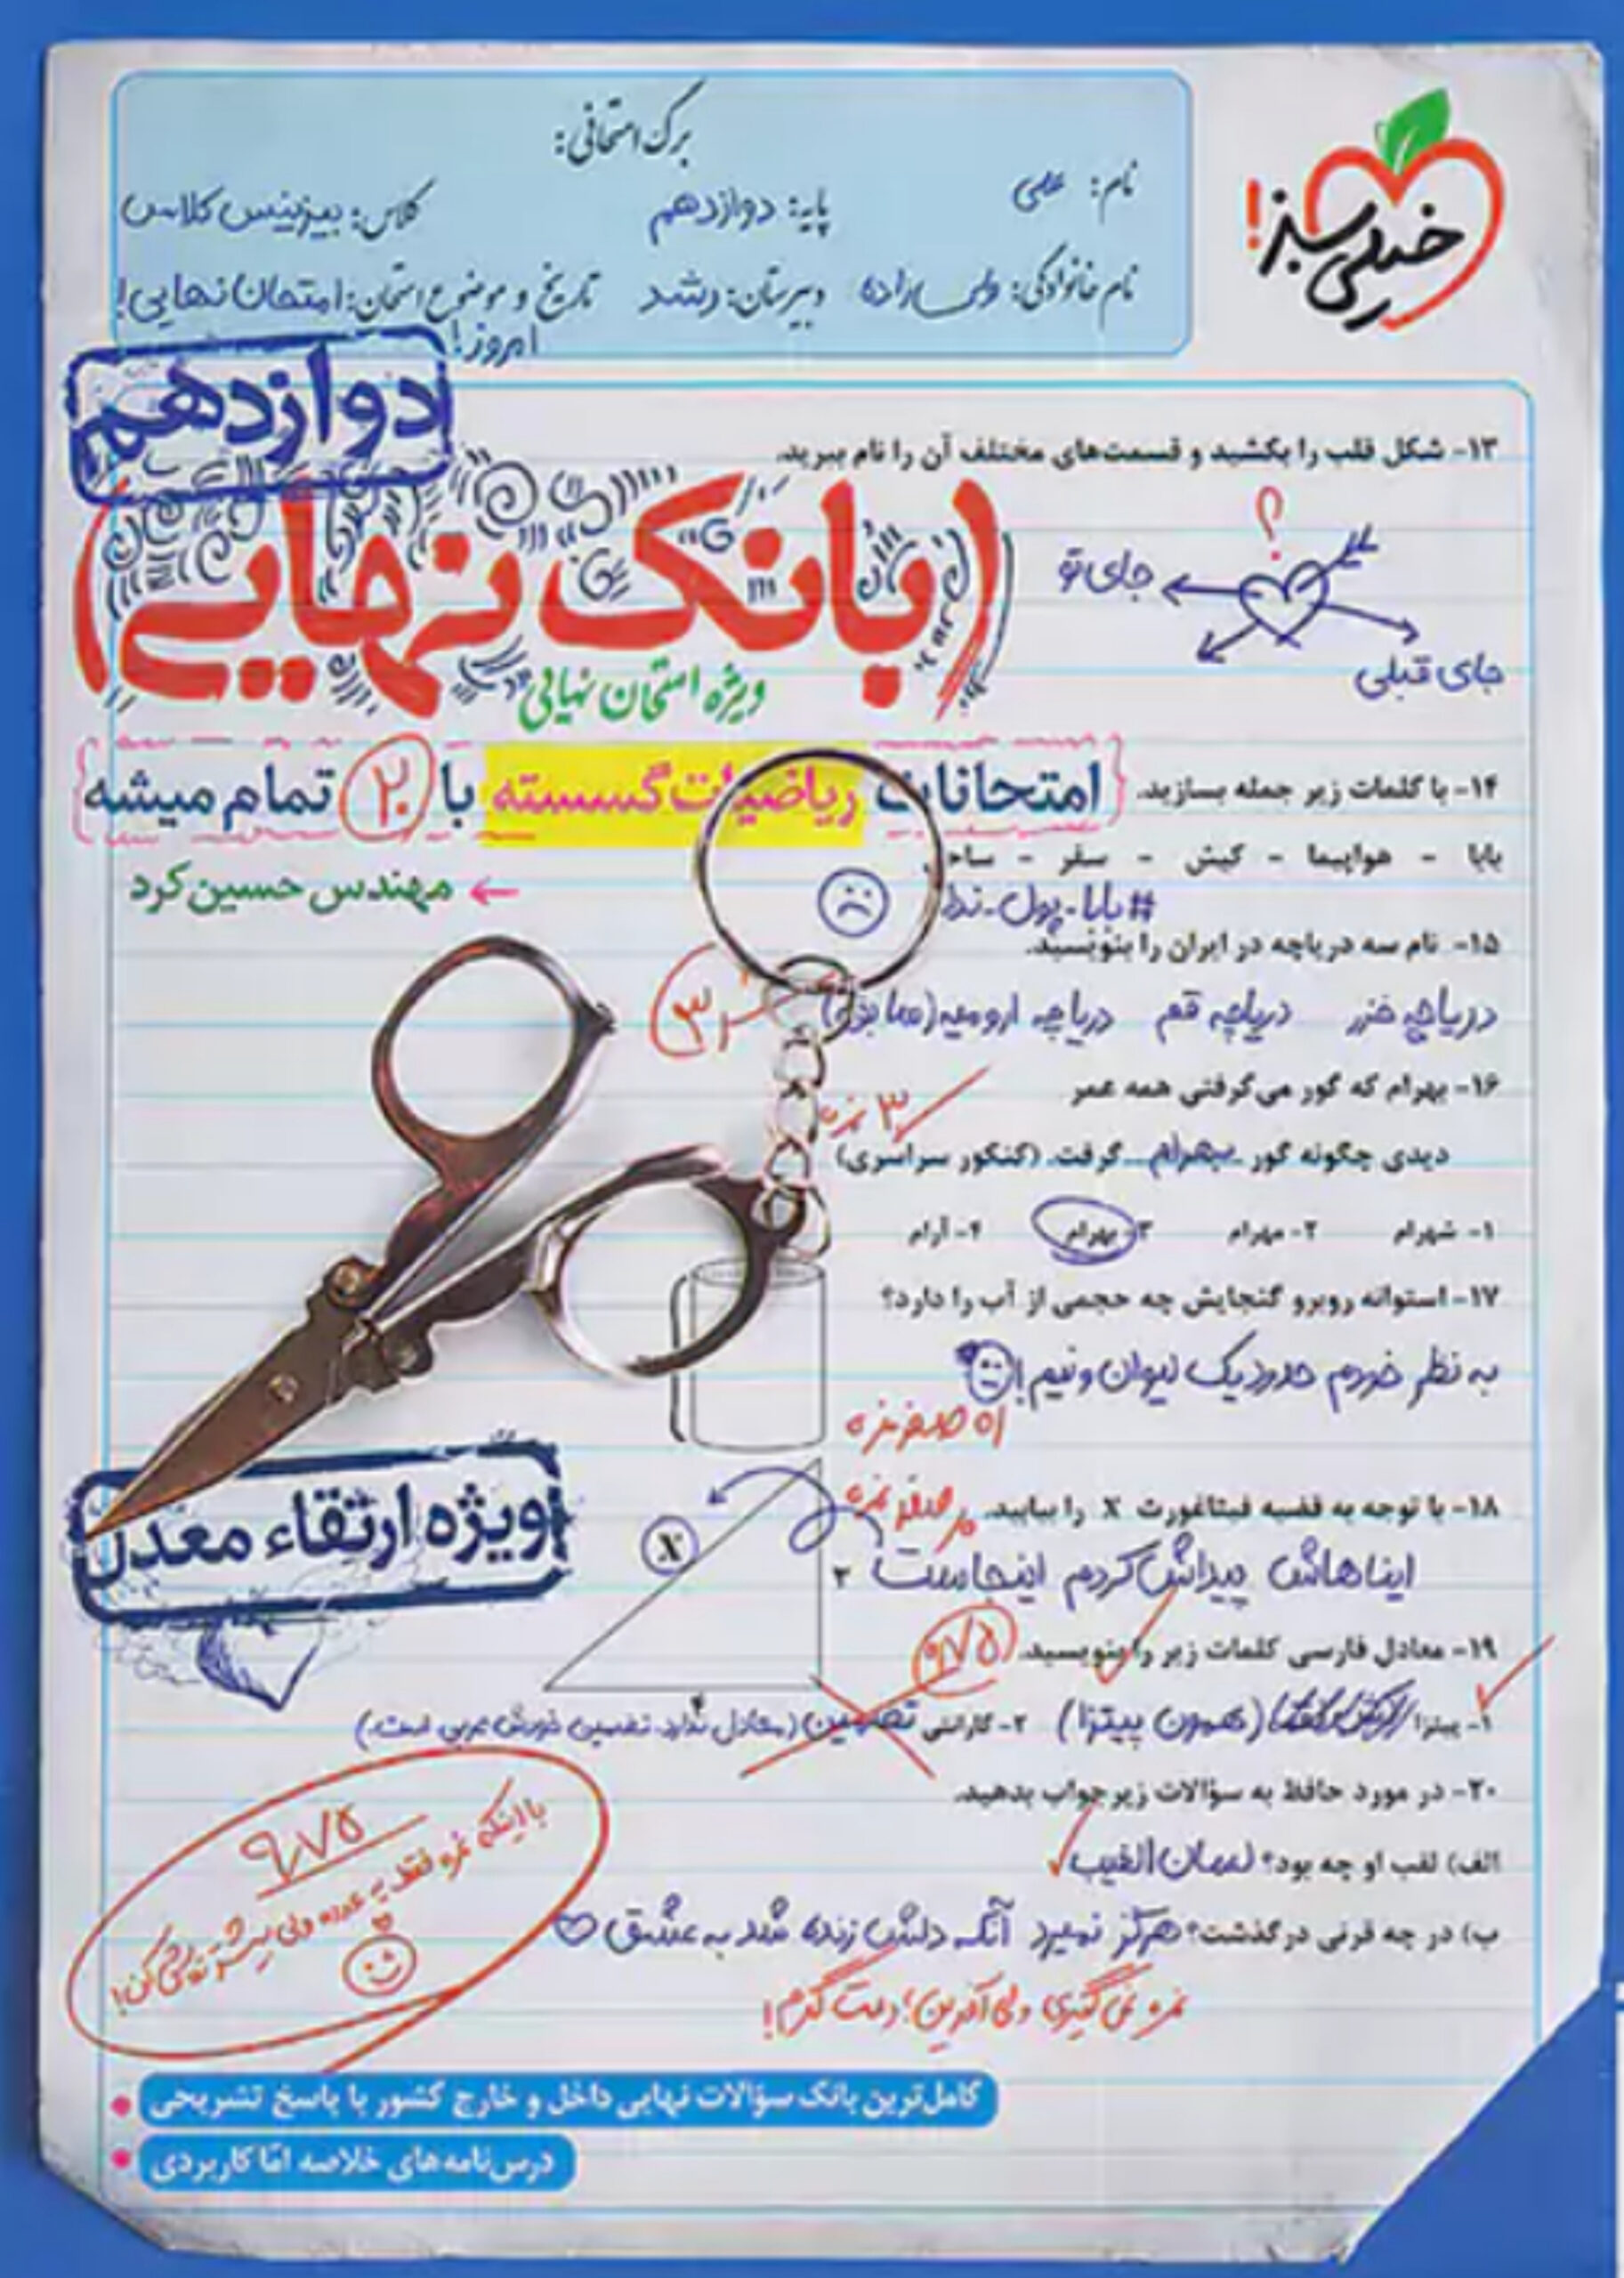 خیلی سبز!
برگ امتحانی:
نام: علی
پایه: دوازدهم
کلاس: بیزینس کلاس
نام خانوادگی:
دبیرستان: رشد
تاریخ و موضوع امتحان: امتحان نهایی!
امروز!
دوازدهم
۱۳- شکل قلب را بکشید و قسمت‌های مختلف آن را نام ببرید.
(بانک نهایی)
؟
جای تو
جای قبلی
ویژه امتحان نهایی
امتحانات ریاضیات گسسته با ۲۰ تمام میشه
۱۴- با کلمات زیر جمله بسازید.
بابا - هواپیما - کیش - سفر -
مهندس حسین کرد
#بابا-پول-
۱۵- نام سه دریاچه در ایران را بنویسید.
دریاچه خزر دریاچه قم دریاچه ارومیه (سابق)
۱۶- بهرام که گور می‌گرفتی همه عمر
۳ نمره
دیدی چگونه گور بهرام گرفت. (کنکور سراسری)
۱- شهرام ۲- مهرام ۳- بهرام ۴- آرام
۱۷- استوانه روبرو گنجایش چه حجمی از آب را دارد؟
به نظر خودم حدود یک لیوان و نیم!
صفر نمره
۱۸- با توجه به قضیه فیثاغورث x را بیابید.
صفر نمره
X
ایناهاش پیداش کردم اینجاست
۳
ویژه ارتقاء معدل
۱۹- معادل فارسی کلمات زیر را بنویسید.
۹/۷۵
۴
۱- پیتزا (همون پیتزا) ۲- گارانتی تضمین (معادل ندارد. تضمین خودش عربی است.)
۲۰- در مورد حافظ به سؤالات زیر جواب بدهید.
الف) لقب او چه بود؟ لسان الغیب
ب) در چه قرنی درگذشت؟ هرگز نمیرد آنکه دلش زنده شد به عشق
نمره نمی‌گیری ولی آفرین؛ دمت گرم!
۹/۷۵
با اینکه نمره فقط یه عدده ولی بیشتر تلاش کن!
کامل‌ترین بانک سؤالات نهایی داخل و خارج کشور با پاسخ تشریحی
درس‌نامه‌های خلاصه امّا کاربردی